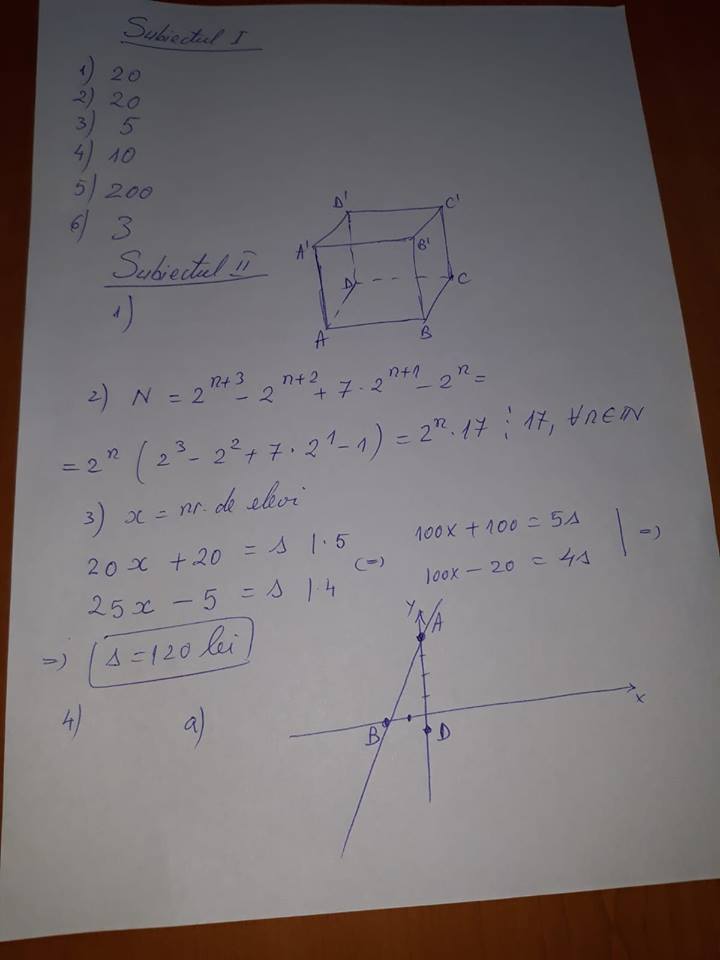 Subiectul I
1) 20
2) 20
3) 5
4) 10
5) 200
6) 3
Subiectul II
1)
D' C'
A' B'
D C
A B
2) N = 2^{n+3} - 2^{n+2} + 7 · 2^{n+1} - 2^n =
= 2^n (2^3 - 2^2 + 7 · 2^1 - 1) = 2^n · 17 ⋮ 17, ∀ n ∈ ℕ
3) x = nr. de elevi
20x + 20 = s | · 5 (=) 100x + 100 = 5s | =)
25x - 5 = s | · 4 100x - 20 = 4s
=) s = 120 lei
4) a)
y A
x
B D